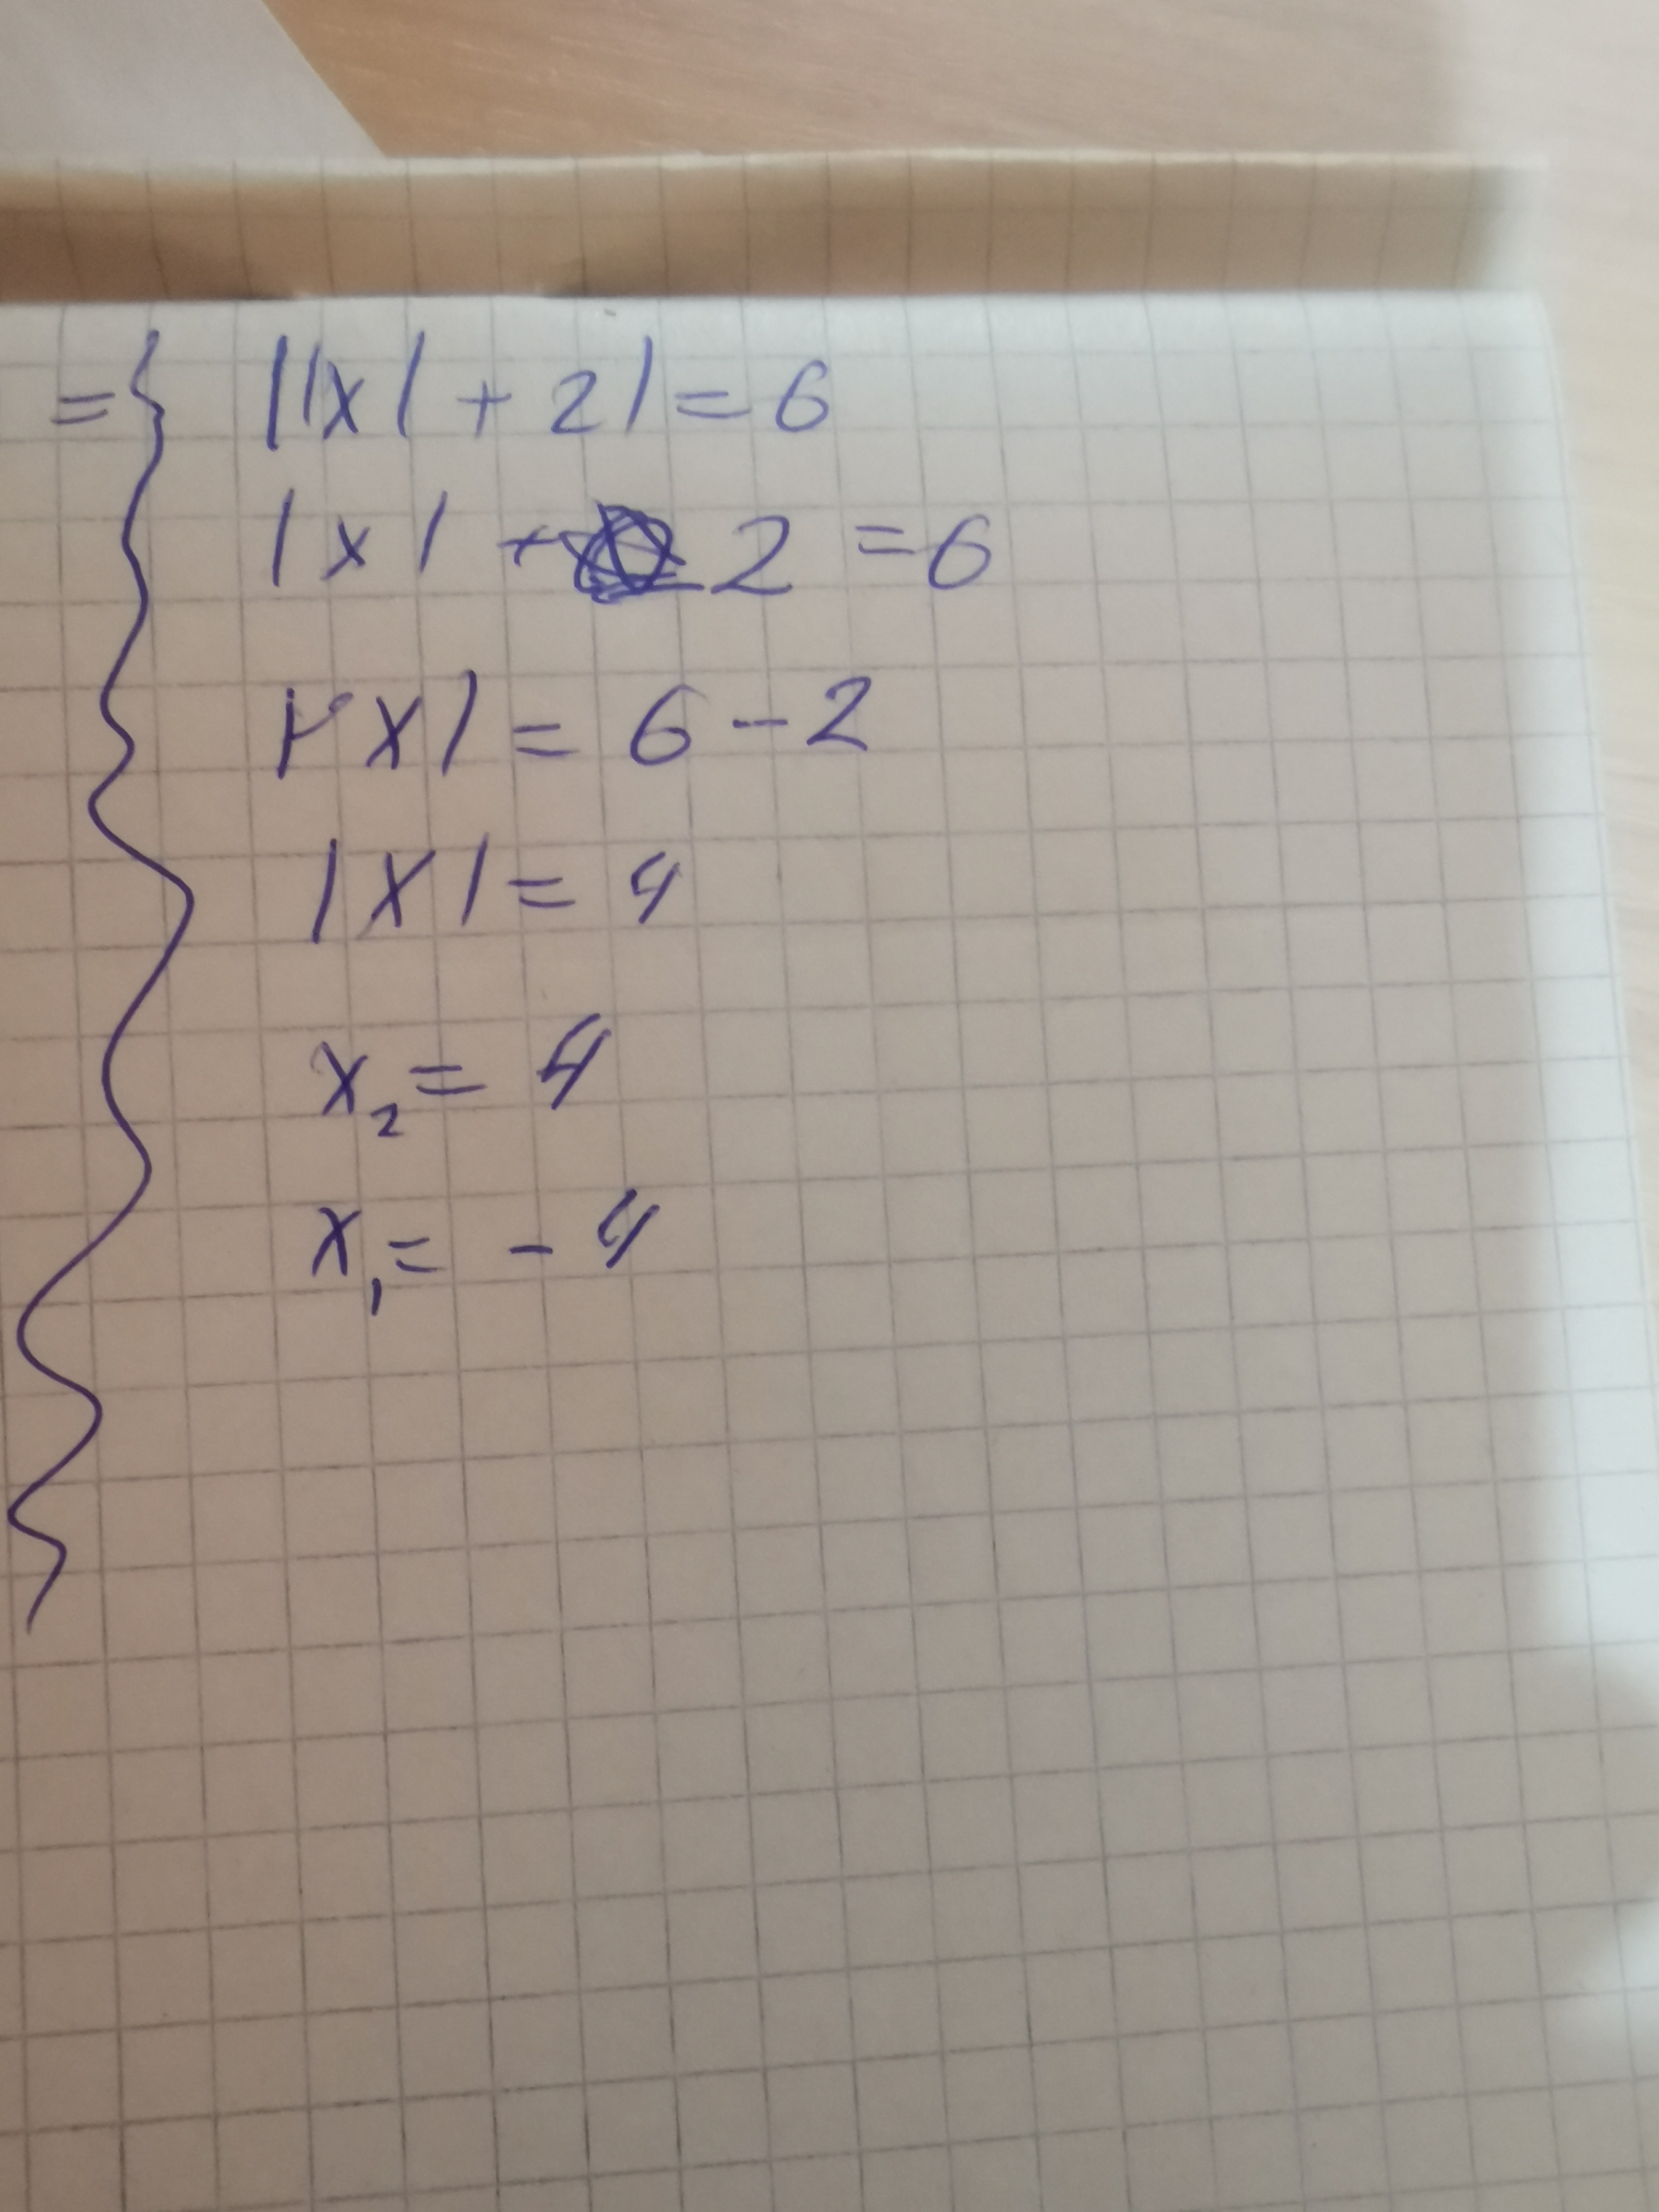 = { ||x| + 2| = 6
|x| + 2 = 6
|x| = 6 - 2
|x| = 4
x₂ = 4
x₁ = - 4